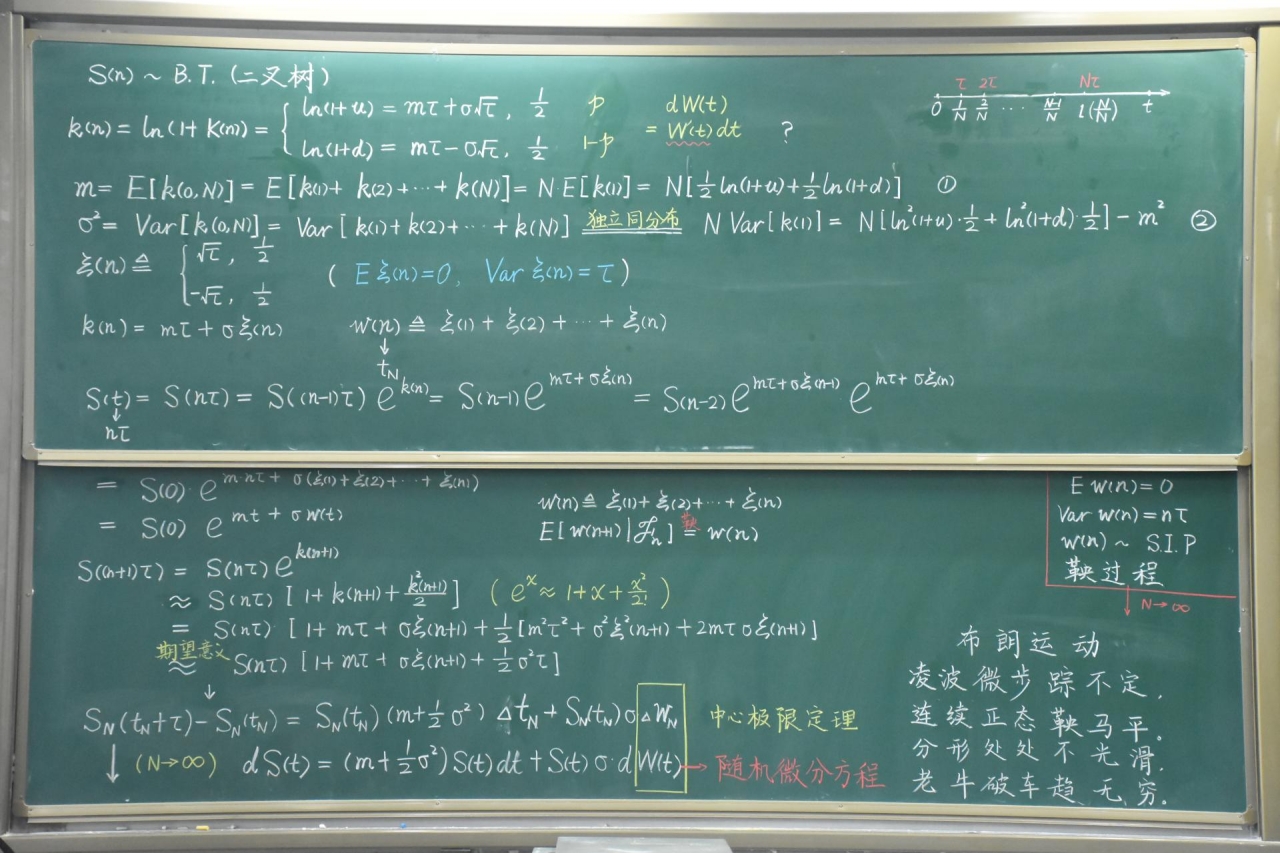 S(n) ~ B.T. (二叉树)
k(n) = ln(1+K(n)) = { ln(1+u) = mτ+σ√τ, 1/2 p
ln(1+d) = mτ-σ√τ, 1/2 1-p
dW(t)
= W'(t)dt ?
τ 2τ Nτ
0 1/N 2/N ··· N-1/N 1(N/N) t
m = E[k(0,N)] = E[k(1)+k(2)+···+k(N)] = N·E[k(1)] = N[1/2 ln(1+u)+1/2 ln(1+d)] ①
σ² = Var[k(0,N)] = Var[k(1)+k(2)+···+k(N)] 独立同分布 N Var[k(1)] = N[ln²(1+u)·1/2 + ln²(1+d)·1/2] - m² ②
ξ(n) ≜ { √τ, 1/2
-√τ, 1/2
(Eξ(n)=0, Var ξ(n)=τ)
k(n) = mτ + σξ(n) w(n) ≜ ξ(1)+ξ(2)+···+ξ(n)
↓
t_N
S(t) = S(nτ) = S((n-1)τ) e^{k(n)} = S(n-1) e^{mτ+σξ(n)} = S(n-2) e^{mτ+σξ(n-1)} e^{mτ+σξ(n)}
↓
nτ
= S(0)·e^{m·nτ+σ(ξ(1)+ξ(2)+···+ξ(n))}
= S(0) e^{mt+σw(t)}
w(n) ≜ ξ(1)+ξ(2)+···+ξ(n)
E[w(n+1)|ℱ_n] 鞅 = w(n)
E w(n)=0
Var w(n)=nτ
w(n) ~ S.I.P
鞅过程
↓ N→∞
S((n+1)τ) = S(nτ) e^{k(n+1)}
≈ S(nτ) [1+k(n+1)+k²(n+1)/2] (e^x ≈ 1+x+x²/2!)
= S(nτ) [1+mτ+σξ(n+1)+1/2[m²τ²+σ²ξ²(n+1)+2mτσξ(n+1)]
期望意义
≈ S(nτ) [1+mτ+σξ(n+1)+1/2σ²τ]
↓
S_N(t_N+τ)-S_N(t_N) = S_N(t_N)(m+1/2σ²)Δt_N+S_N(t_N)σΔw_N 中心极限定理
↓ (N→∞) dS(t) = (m+1/2σ²)S(t)dt+S(t)σ·dW(t) → 随机微分方程
布朗运动
凌波微步踪不定，
连续正态鞅马平。
分形处处不光滑，
老牛破车趋无穷。